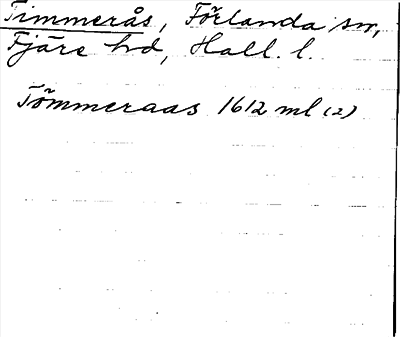 Timmerås, Förlanda sn,
Fjäre hd, Hall. l.
Tömmeraas 1612 ml (2)